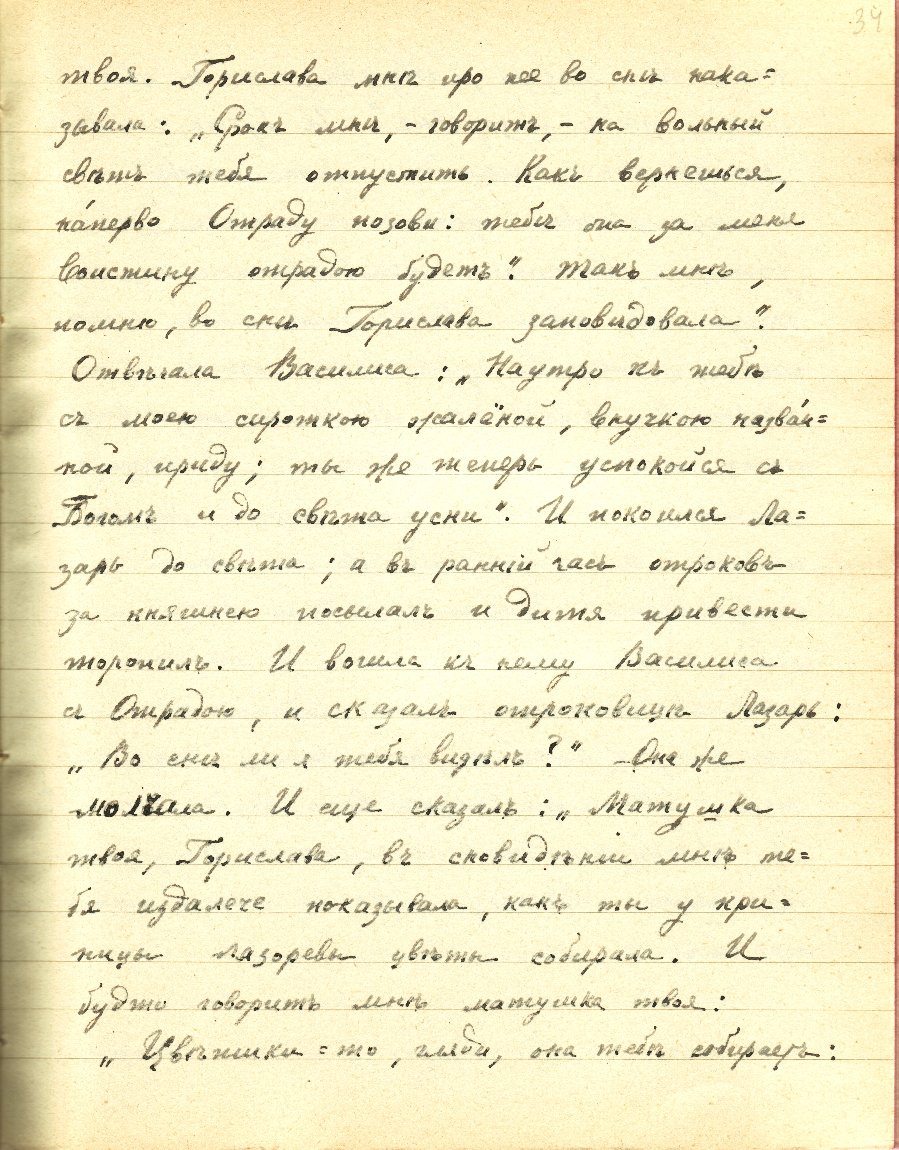 34
твоя. Горислава мнѣ про нее во снѣ нака=
зывала: „Срокъ мнѣ, – говоритъ, – на вольный
свѣтъ тебя отпустить. Какъ вернешься,
на́перво Отраду позови: тебѣ она за меня
воистину отрадою будетъ“. Такъ мнѣ,
помню, во снѣ Горислава заповѣдовала“.
Отвѣчала Василиса: „Наутро къ тебѣ
съ моею сироткою жалёной, внучкою назва́н=
ной, приду; ты же теперь успокойся съ
Богомъ и до свѣта усни“. И покоился Ла=
зарь до свѣта; а въ ранній часъ отроковъ
за княгинею посылалъ и дитя привести
торопилъ. И вошла къ нему Василиса
съ Отрадою, и сказалъ отроковицѣ Лазарь:
„Во снѣ ли я тебя видѣлъ?“ – Она же
молчала. И еще сказалъ: „Матушка
твоя, Горислава, въ сновидѣніи мнѣ те=
бя издалече показывала, какъ ты у кри=
ницы лазоревы цвѣты собирала. И
будто говоритъ мнѣ матушка твоя:
„Цвѣтики=то, гляди, она тебѣ собираетъ: